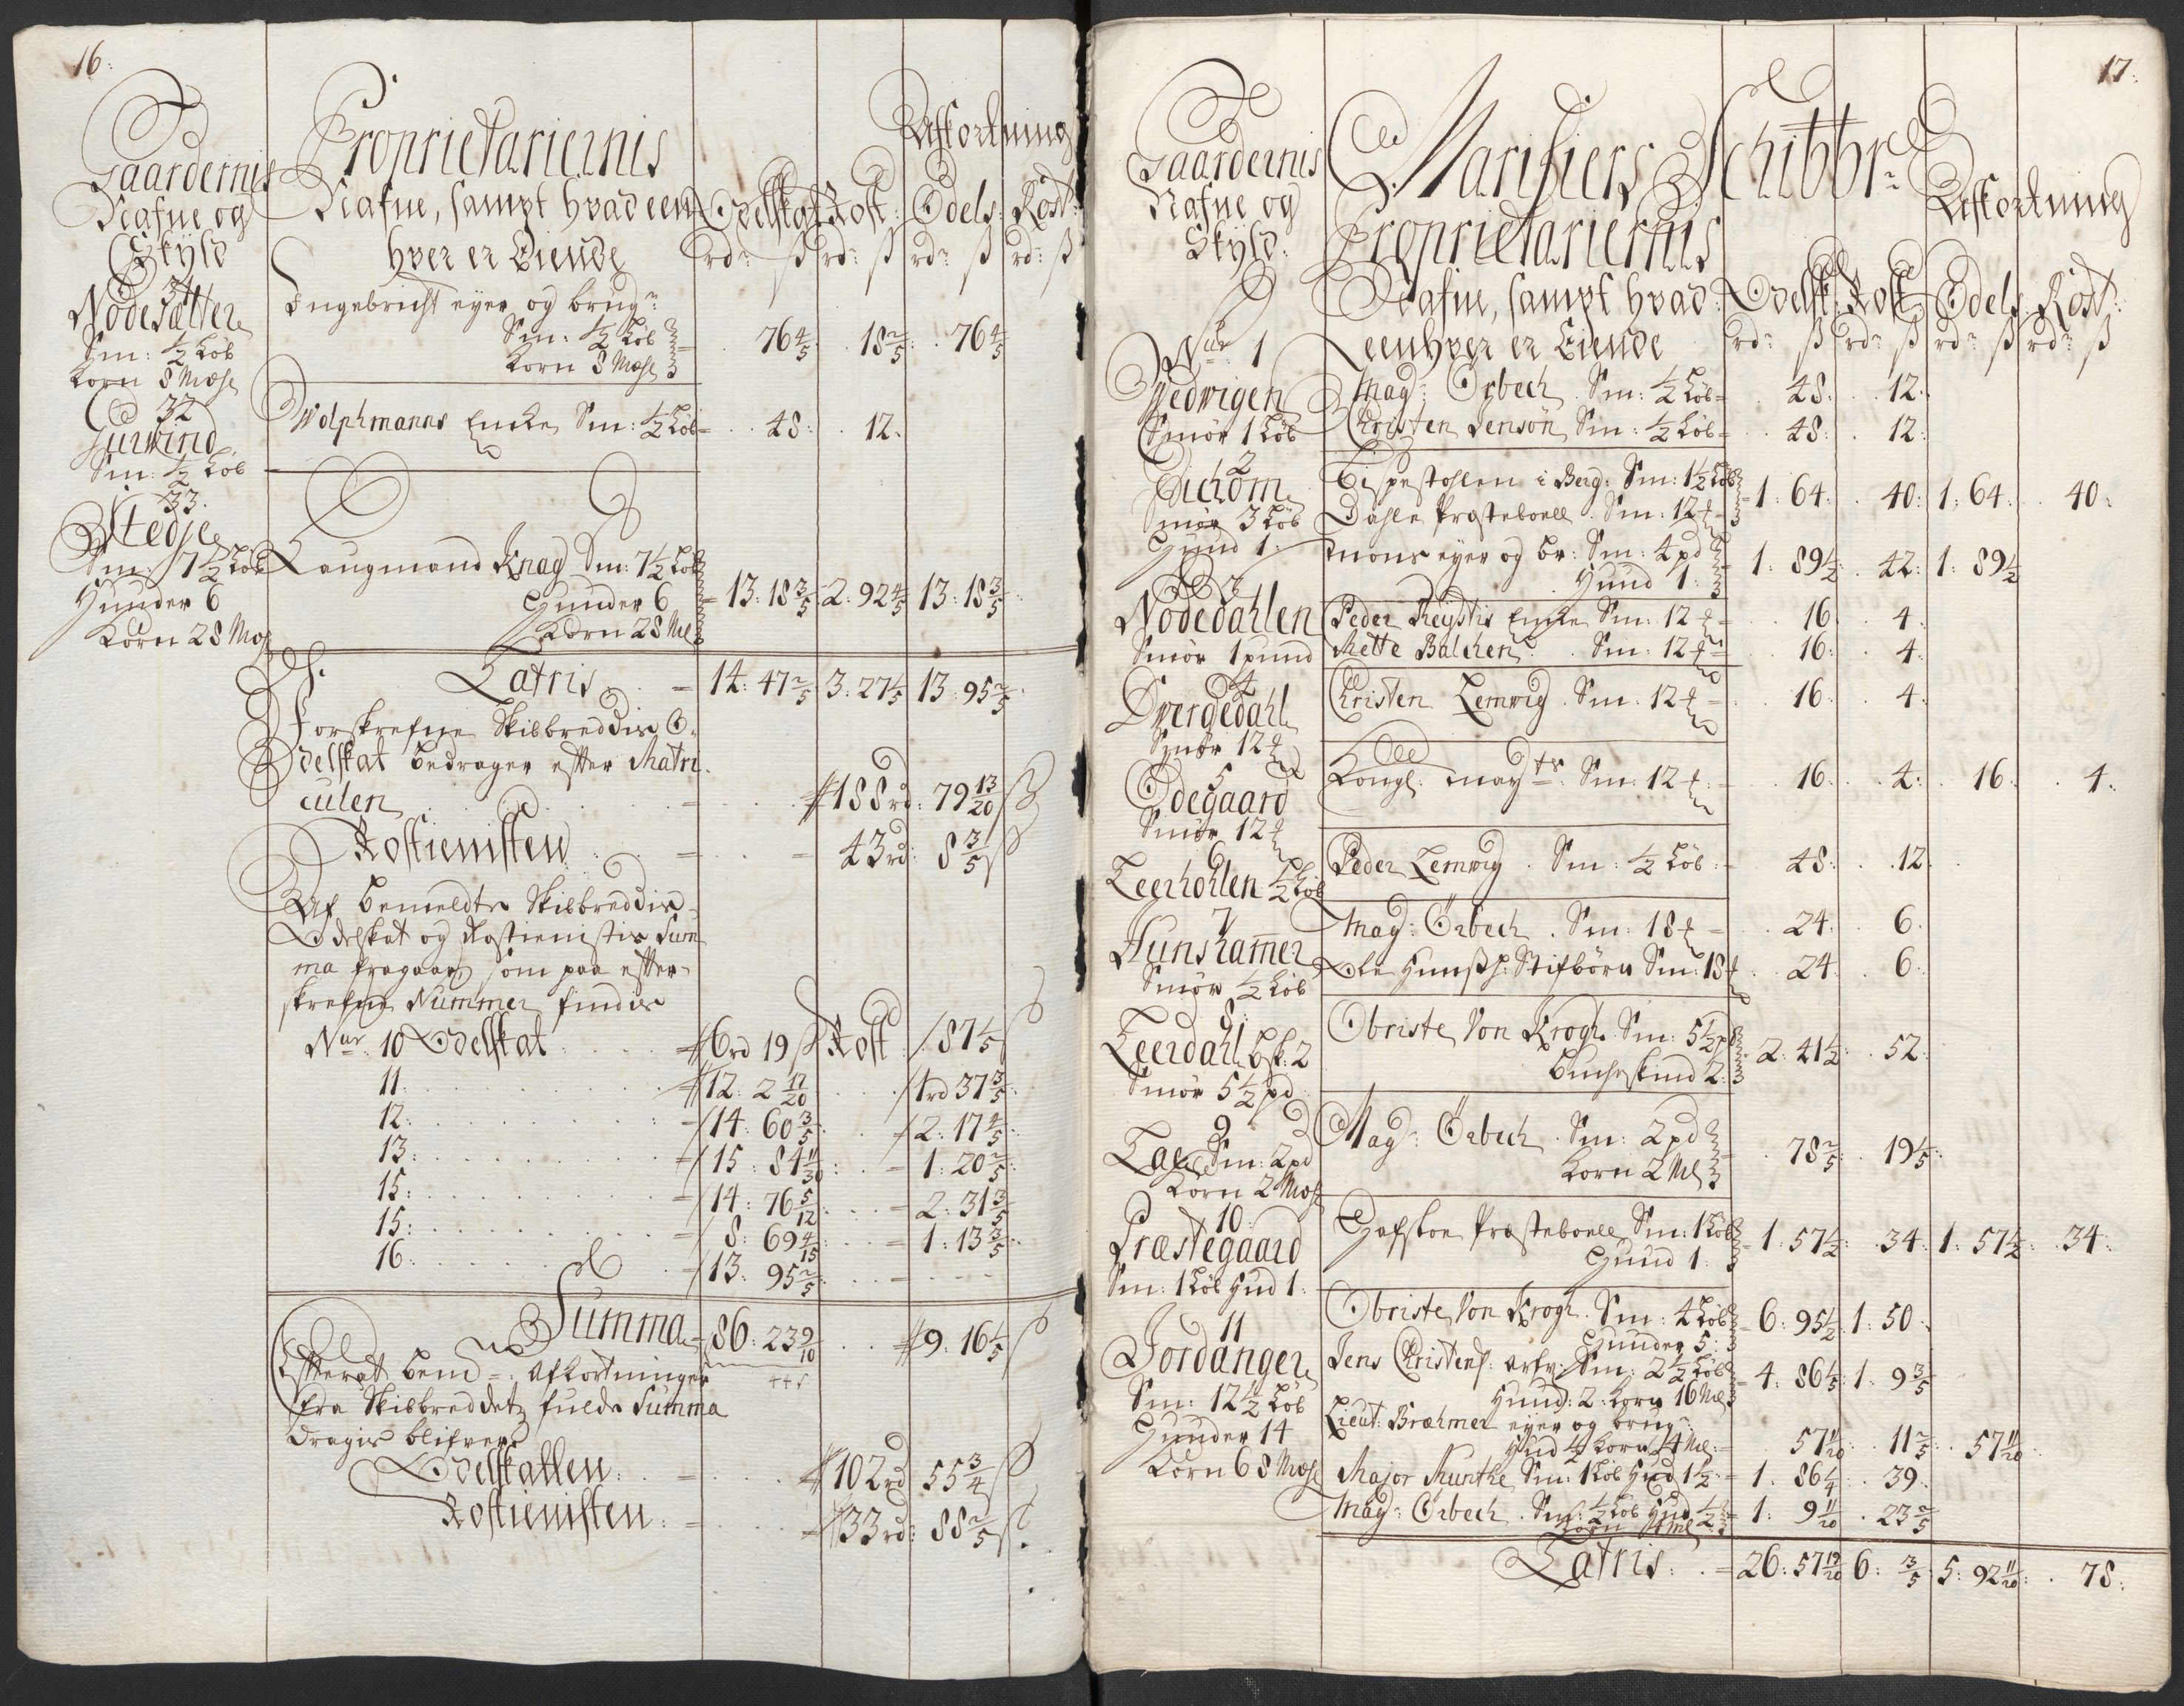 16:
Gaardernis
Nafne og
Skyld
Proprietariernis
Nafne, sampt hvad een
hver er Eiende
Afkortning
Odelskat Rost: Odels: Rost:
rd: ß rd: ß rd: ß rd: ß
31
Nödesætter
Sm: ½ Löb
Korn 8 Mæle
Ingebricht eyer og brug:
Sm: ½ Löb
Korn 8 Mæle
76 4/5 18 2/5 76 4/5
32
Sm: ½ Löb
Wolphmanns Encke Sm: ½ Löb = 48: 12.
33.
Stedje
Sm: 7½ Löb
Hunder 6
Korn 28 Mæ
Laugmand Knag Sm: 7½ Löb
Hunder 6
Korn 28 Ml
13: 18 3/5 2: 92 4/5 13: 18 3/5
Latris = 14: 47 2/5 3: 27 1/5 13: 95 2/5
Forskrefne Skibbreddis O-
delskat bedrager efter Matri-
culen = 188 rd: 79 13/20 ß
Rostienisten = 43 rd: 8 3/5 ß
Af bemeldte Skibbreddis
Odelskat og Rostienistis Sum
ma fragaar som paa efter-
skrefne Nummer findis
Nur: 10 Odelskat = 6 rd 19 ß Rost: 87 1/5
11: 12: 2 17/20 1 rd 37 3/5
12: 14: 60 3/5 2: 17 4/5
13: 15: 84 11/30 1: 20 2/5
15: 14: 76 5/12 2: 31 3/5
15: 8: 69 4/15 1: 13 3/5
16: 13: 95 2/5
Summa = 86: 23 9/10 9: 16 1/5 ß
Efterat bem= : Afkortninger
fra Skibbreddetz fulde Summa
dragis blifver
Odelskatten: = 102 rd 55 3/4 ß
Rostienisten: = 33 rd: 88 2/5 ß
17:
Gaardernis
Nafne og
Skyld:
Marifiers Schibbr:
Proprietariernis
Nafne, sampt hvad
eenhver er Eiende
Afkortning
Odelsk: Rost: Odels: Rost:
rd: ß rd: ß rd: ß rd: ß
Nur 1
Wedvigen
Smör 1 Löb
Mag: Orbech Sm: ½ Löb = 48: 12:
Christen Jensön Sm: ½ Löb = 48: 12:
2
Eichom
Smör 3 Löb
Hund 1:
Bispestohlen i Berg: Sm: 1½ Löb
Dahle Præsteboell Sm: 12
1: 64: 40: 1: 64: 40:
Mons eyer og br: Sm: 4 pd
Hund 1:
1: 89½: 42: 1: 89½
3
Nödedahlen
Smör 1 pund
Peder Encke Sm: 12 = 16: 4:
Mette Balchen Sm: 12 16: 4:
4
Dvergedahl
Smör 12
Christen Lemvig Sm: 12 = 16: 4:
5
Ödegaard
Smör 12
Kongl: may ts Sm: 12 = 16: 4: 16: 4:
6
Leerhohlen ½ Löb
Peder Lemvig Sm: ½ Löb: = 48: 12:
7
Hunshamer
Smör ½ Löb
Mag: Örbech Sm: 18 24: 6:
Stifbörn Sm: 18 24: 6:
8:
Leerdahl Bsk: 2
Smör 5½ pd
Obriste Von Krogh Sm: 5½ pd
Buchskind 2:
2: 41½ 52:
9
Sm: 2 pd
Korn 2 Mæle
Mag: Örbech Sm: 2 pd
Korn 2 Ml
78 2/5 19 1/5:
10:
Præstegaard
Sm: 1 Löb Hud 1:
Hafsloe Præsteboell Sm: 1 Löb
Hund 1
1: 57½: 34: 1: 57½: 34:
11
Jordanger
Sm: 12½ Löb
Hunder 14
Korn 68 Mæle
Obriste Von Krogh Sm: 4 Löb
Hunder 5:
6: 95½ 1: 50:
Jens Christens: arfv: Sm: 2½ Löb
Hund: 2: Korn 16 Ml
4: 86 4/5: 1: 9 3/5
Lieut: Bræhmer eyer og brug:
Hud ½ Korn 4 Ml: = 57 11/20: 11 2/5: 57 11/20:
Major Munthe Sm: 1 Löb Hud 1½: = 1: 86¼ 39:
Mag: Örbech Sm: ½ Löb Hud ½
Korn 4 Ml
1: 9 11/20 23 2/5
Latris: = 26: 57 19/20 6: 3/5 5: 92 11/20: 78: